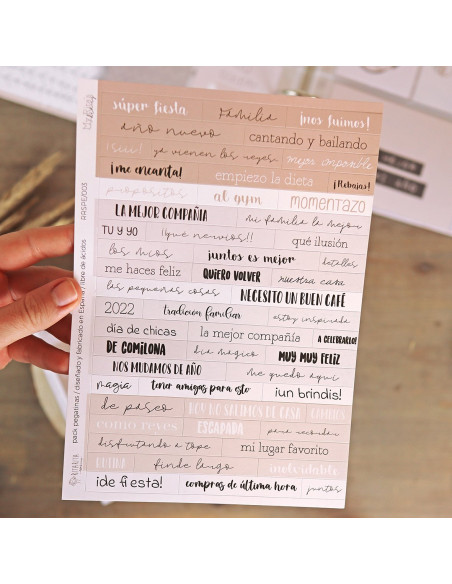 súper fiesta Familia ¡nos fuimos!
año nuevo cantando y bailando
¡siii! ya vienen los reyes mejor imposible
¡me encanta! empiezo la dieta ¡Rebajas!
propósitos al gym MOMENTAZO
LA MEJOR COMPAÑÍA mi familia la mejor
TU Y YO ¡¡qué nervios!! qué ilusión
los míos juntos es mejor detalles
me haces feliz QUIERO VOLVER nuestra casa
las pequeñas cosas NECESITO UN BUEN CAFÉ
2022 tradición familiar estoy inspirada
día de chicas la mejor compañía A CELEBRARLO!
DE COMILONA día mágico MUY MUY FELIZ
NOS MUDAMOS DE AÑO me quedo aquí
magia tener amigas para esto ¡un brindis!
de paseo HOY NO SALIMOS DE CASA
como reyes ESCAPADA para recordar
disfrutando a tope mi lugar favorito
finde largo inolvidable
¡de fiesta! compras de última hora juntos
pack pegatinas / diseñado y fabricado en España y libre de ácidos RRSPE/003